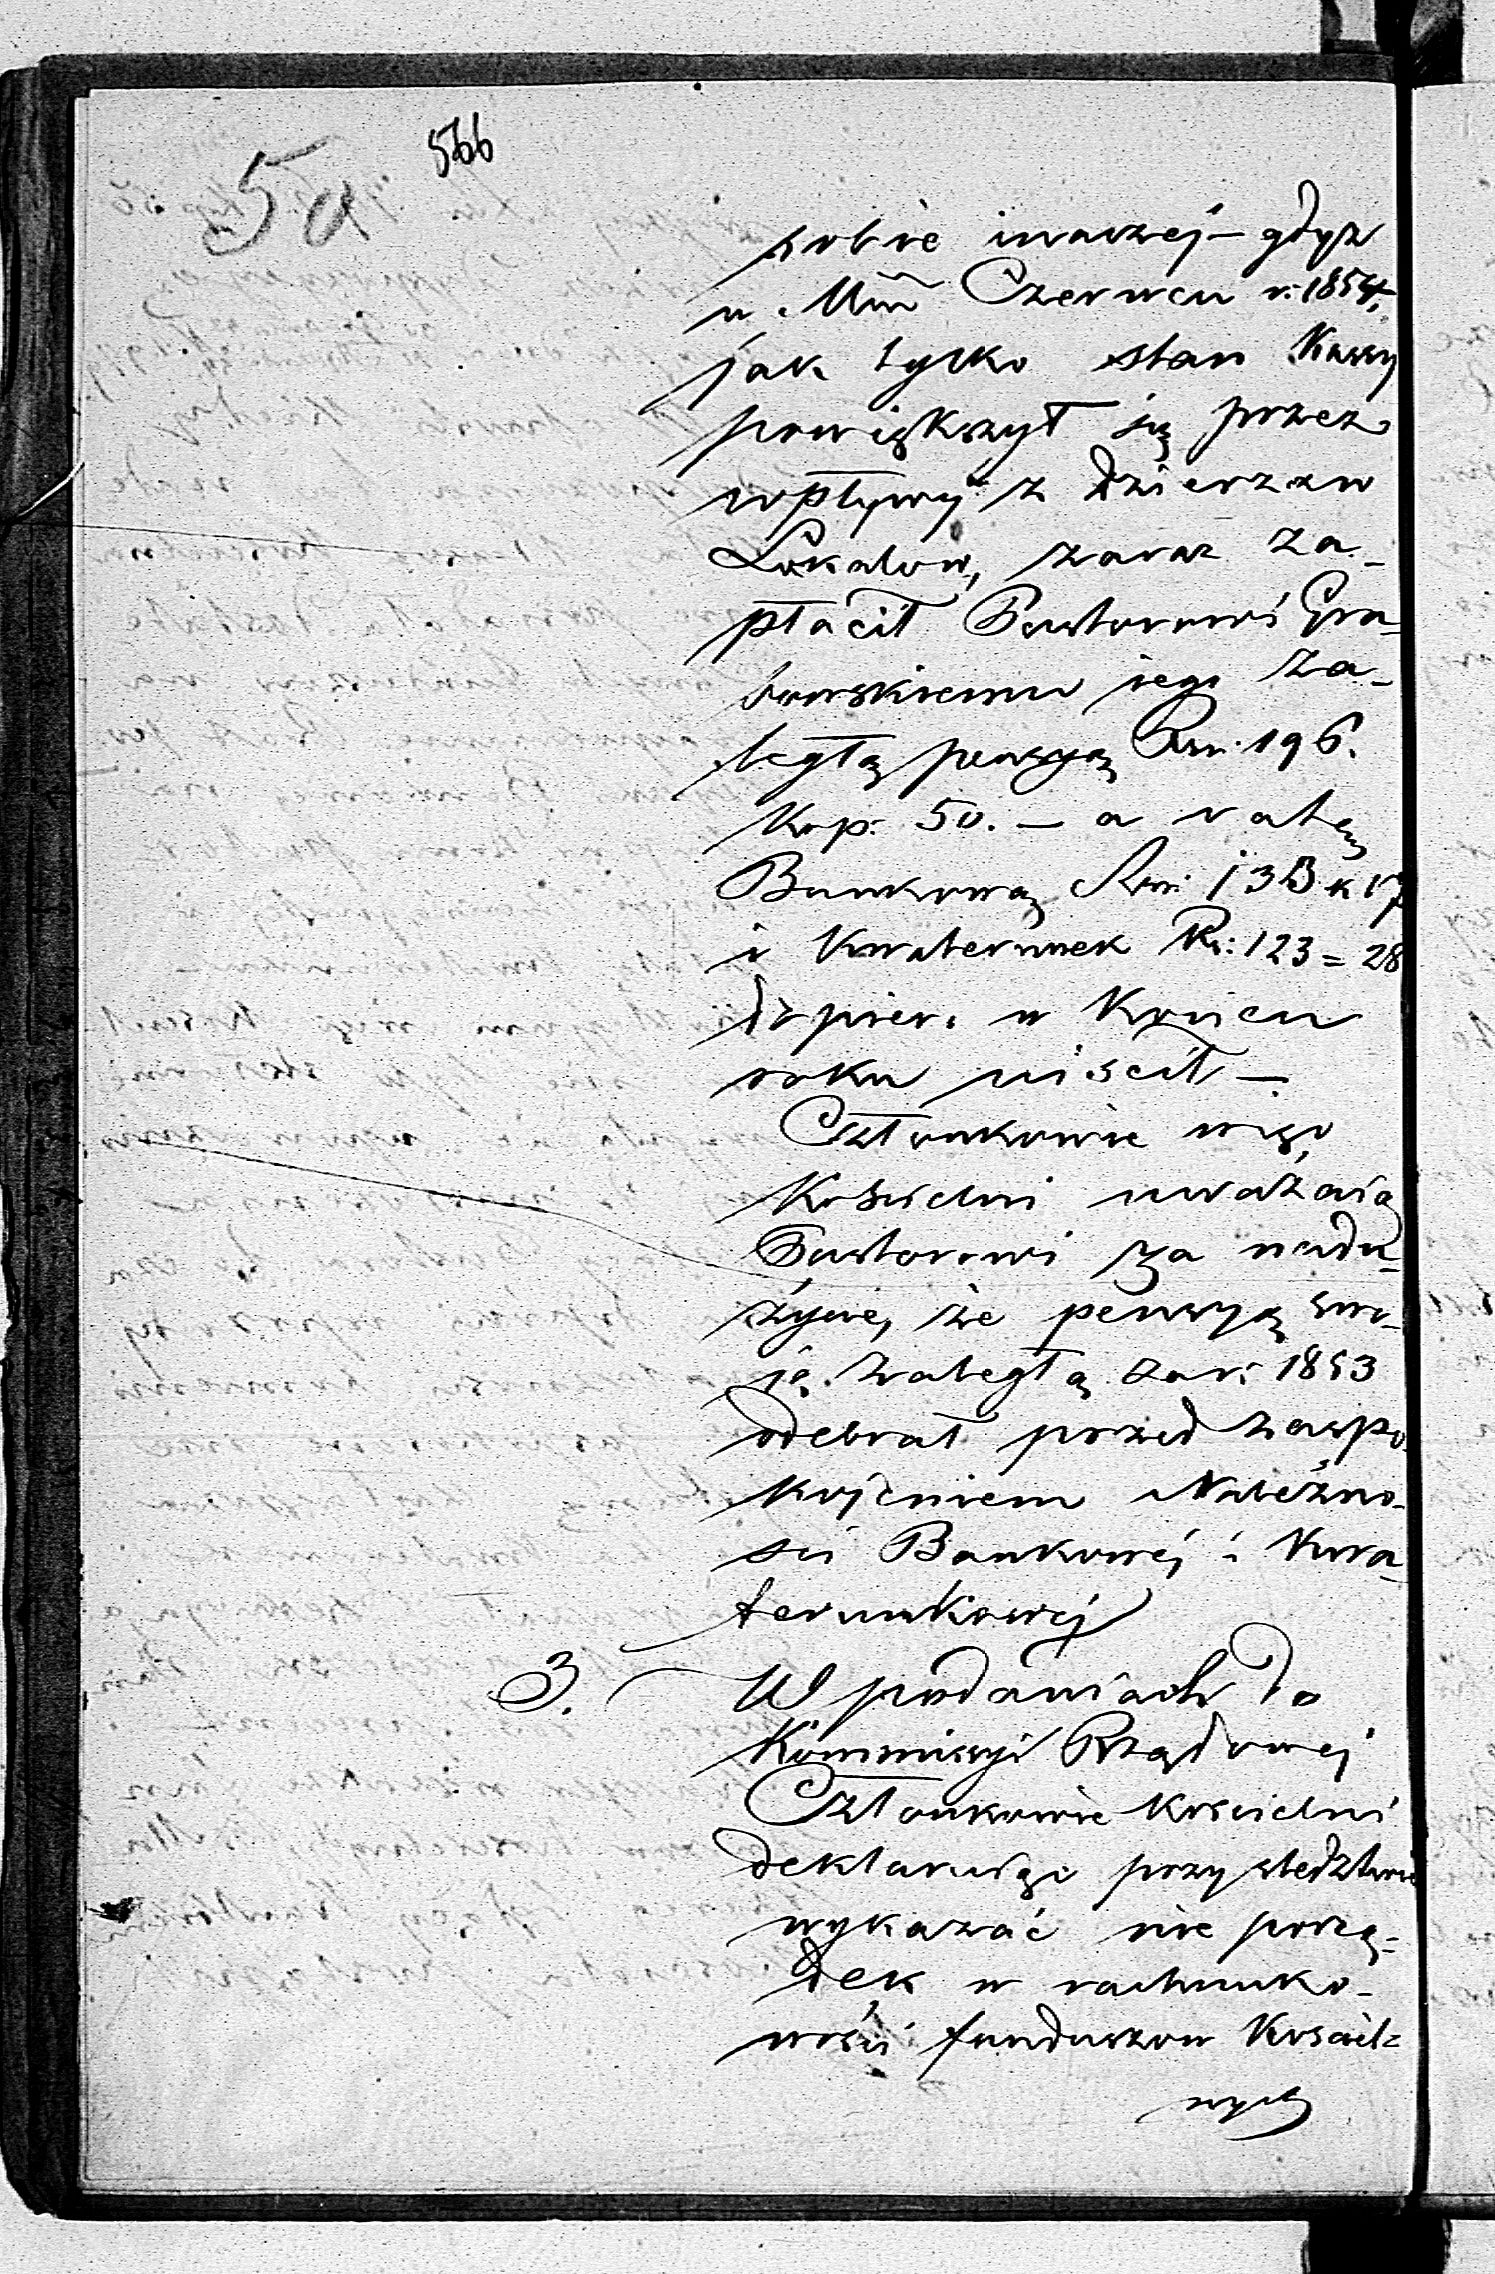 566
5a
sobie inaczej – gdyż
w Mcu Czerwcu r: 1854,
jak tylko stan Kassy
powiększył się przez
wpływy z dzierzaw
Lokalow, zaraz za-
płacił Pastorowi Gra-
bowskiemu iego za-
ległą pensyą Rsr. 196.
kop: 50. – a ratę
Bankową Rsr: 133 k 17
i Kwaterunek Rs: 123 = 28
dopiero w Koncu
roku uiscił –
Członkowie więc
Kościelni uważaią
Pastorowi za nadu-
życie, że pensyą swo-
ią zaległą za r: 1853
odebrał przed zaspo-
kojeniem Należno-
sci Bankowéj i Kwa-
terunkowej
3. W podaniach do
Kommissyi Rządowej
Członkowie Kościelni
deklaruiąc przy sledztwie
wykazać nie porzą-
dek w rachunko-
wości funduszow Kosciel=
nych